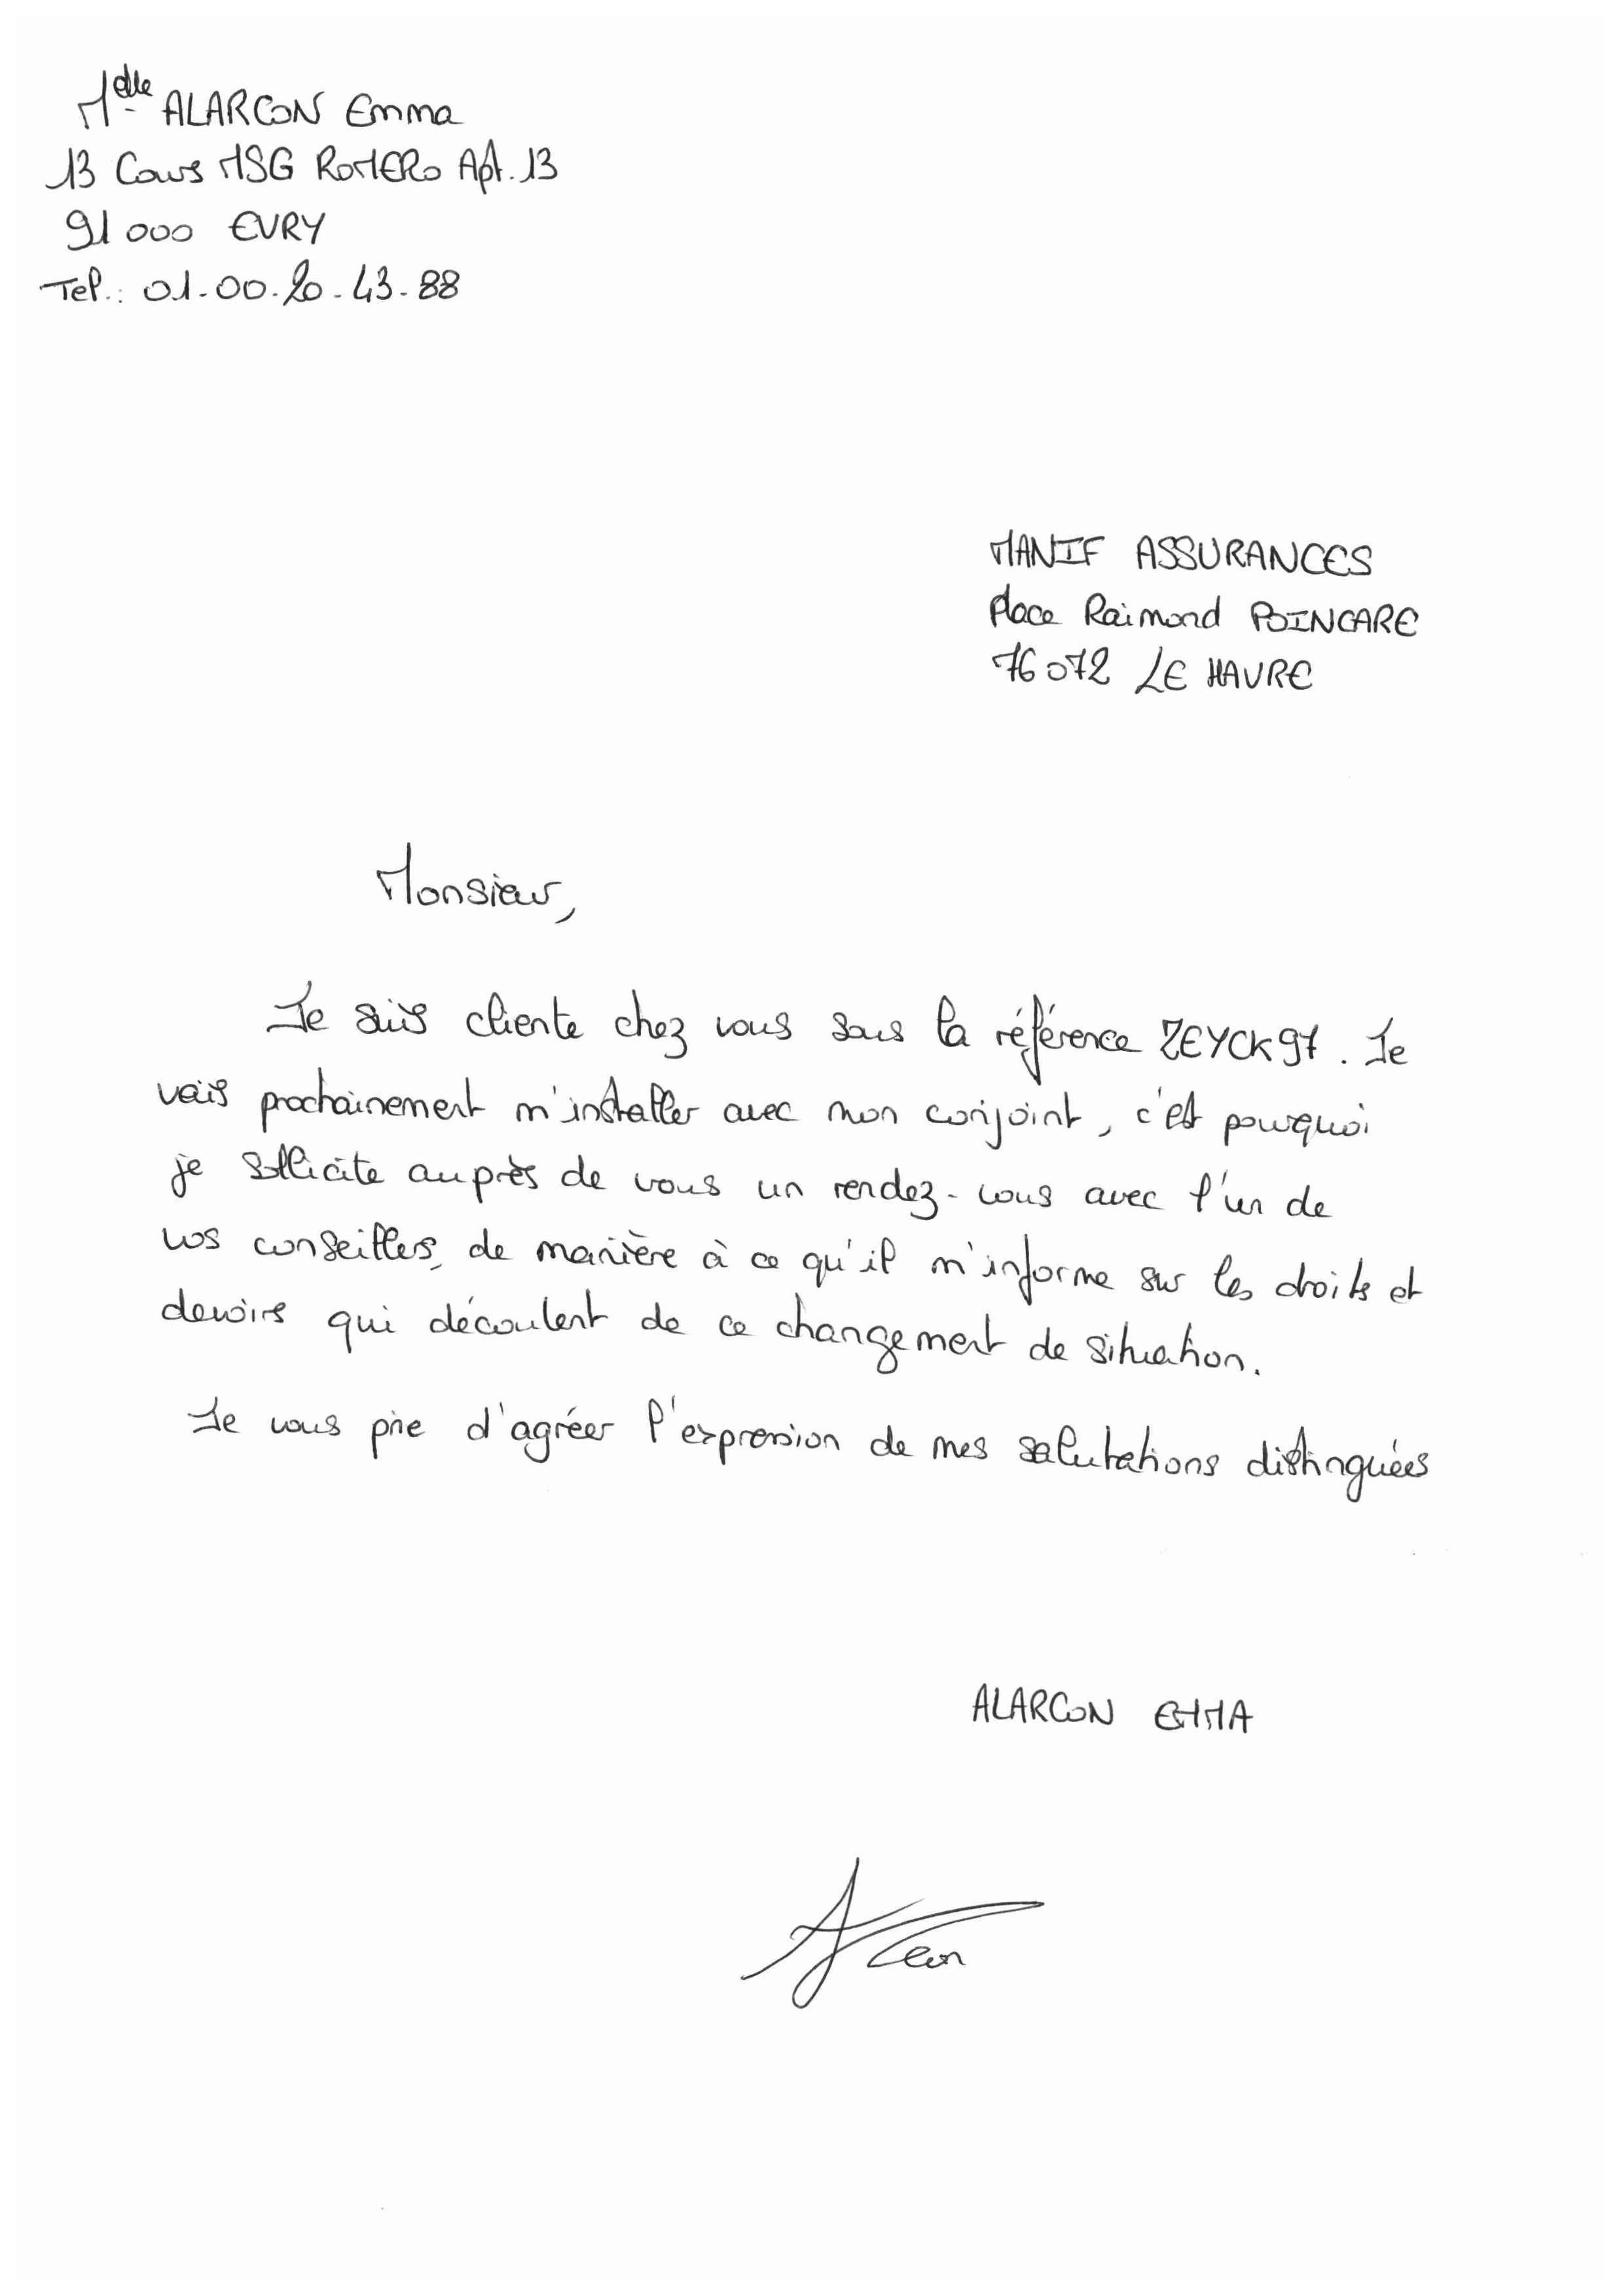 Melle ALARCON Emma
13 Cours MSG ROMERO Apt. 13
91 000 EVRY
Tel.: 01.00.20.43.88
MANIF ASSURANCES
Place Raimond POINCARE
76072 LE HAVRE
Monsieur,
Je suis cliente chez vous sous la référence ZEYCK97. Je
vais prochainement m'installer avec mon conjoint, c'est pourquoi
je sollicite auprès de vous un rendez-vous avec l'un de
vos conseillers, de manière à ce qu'il m'informe sur les droits et
devoirs qui découlent de ce changement de situation.
Je vous prie d'agréer l'expression de mes salutations distinguées
ALARCON EMMA